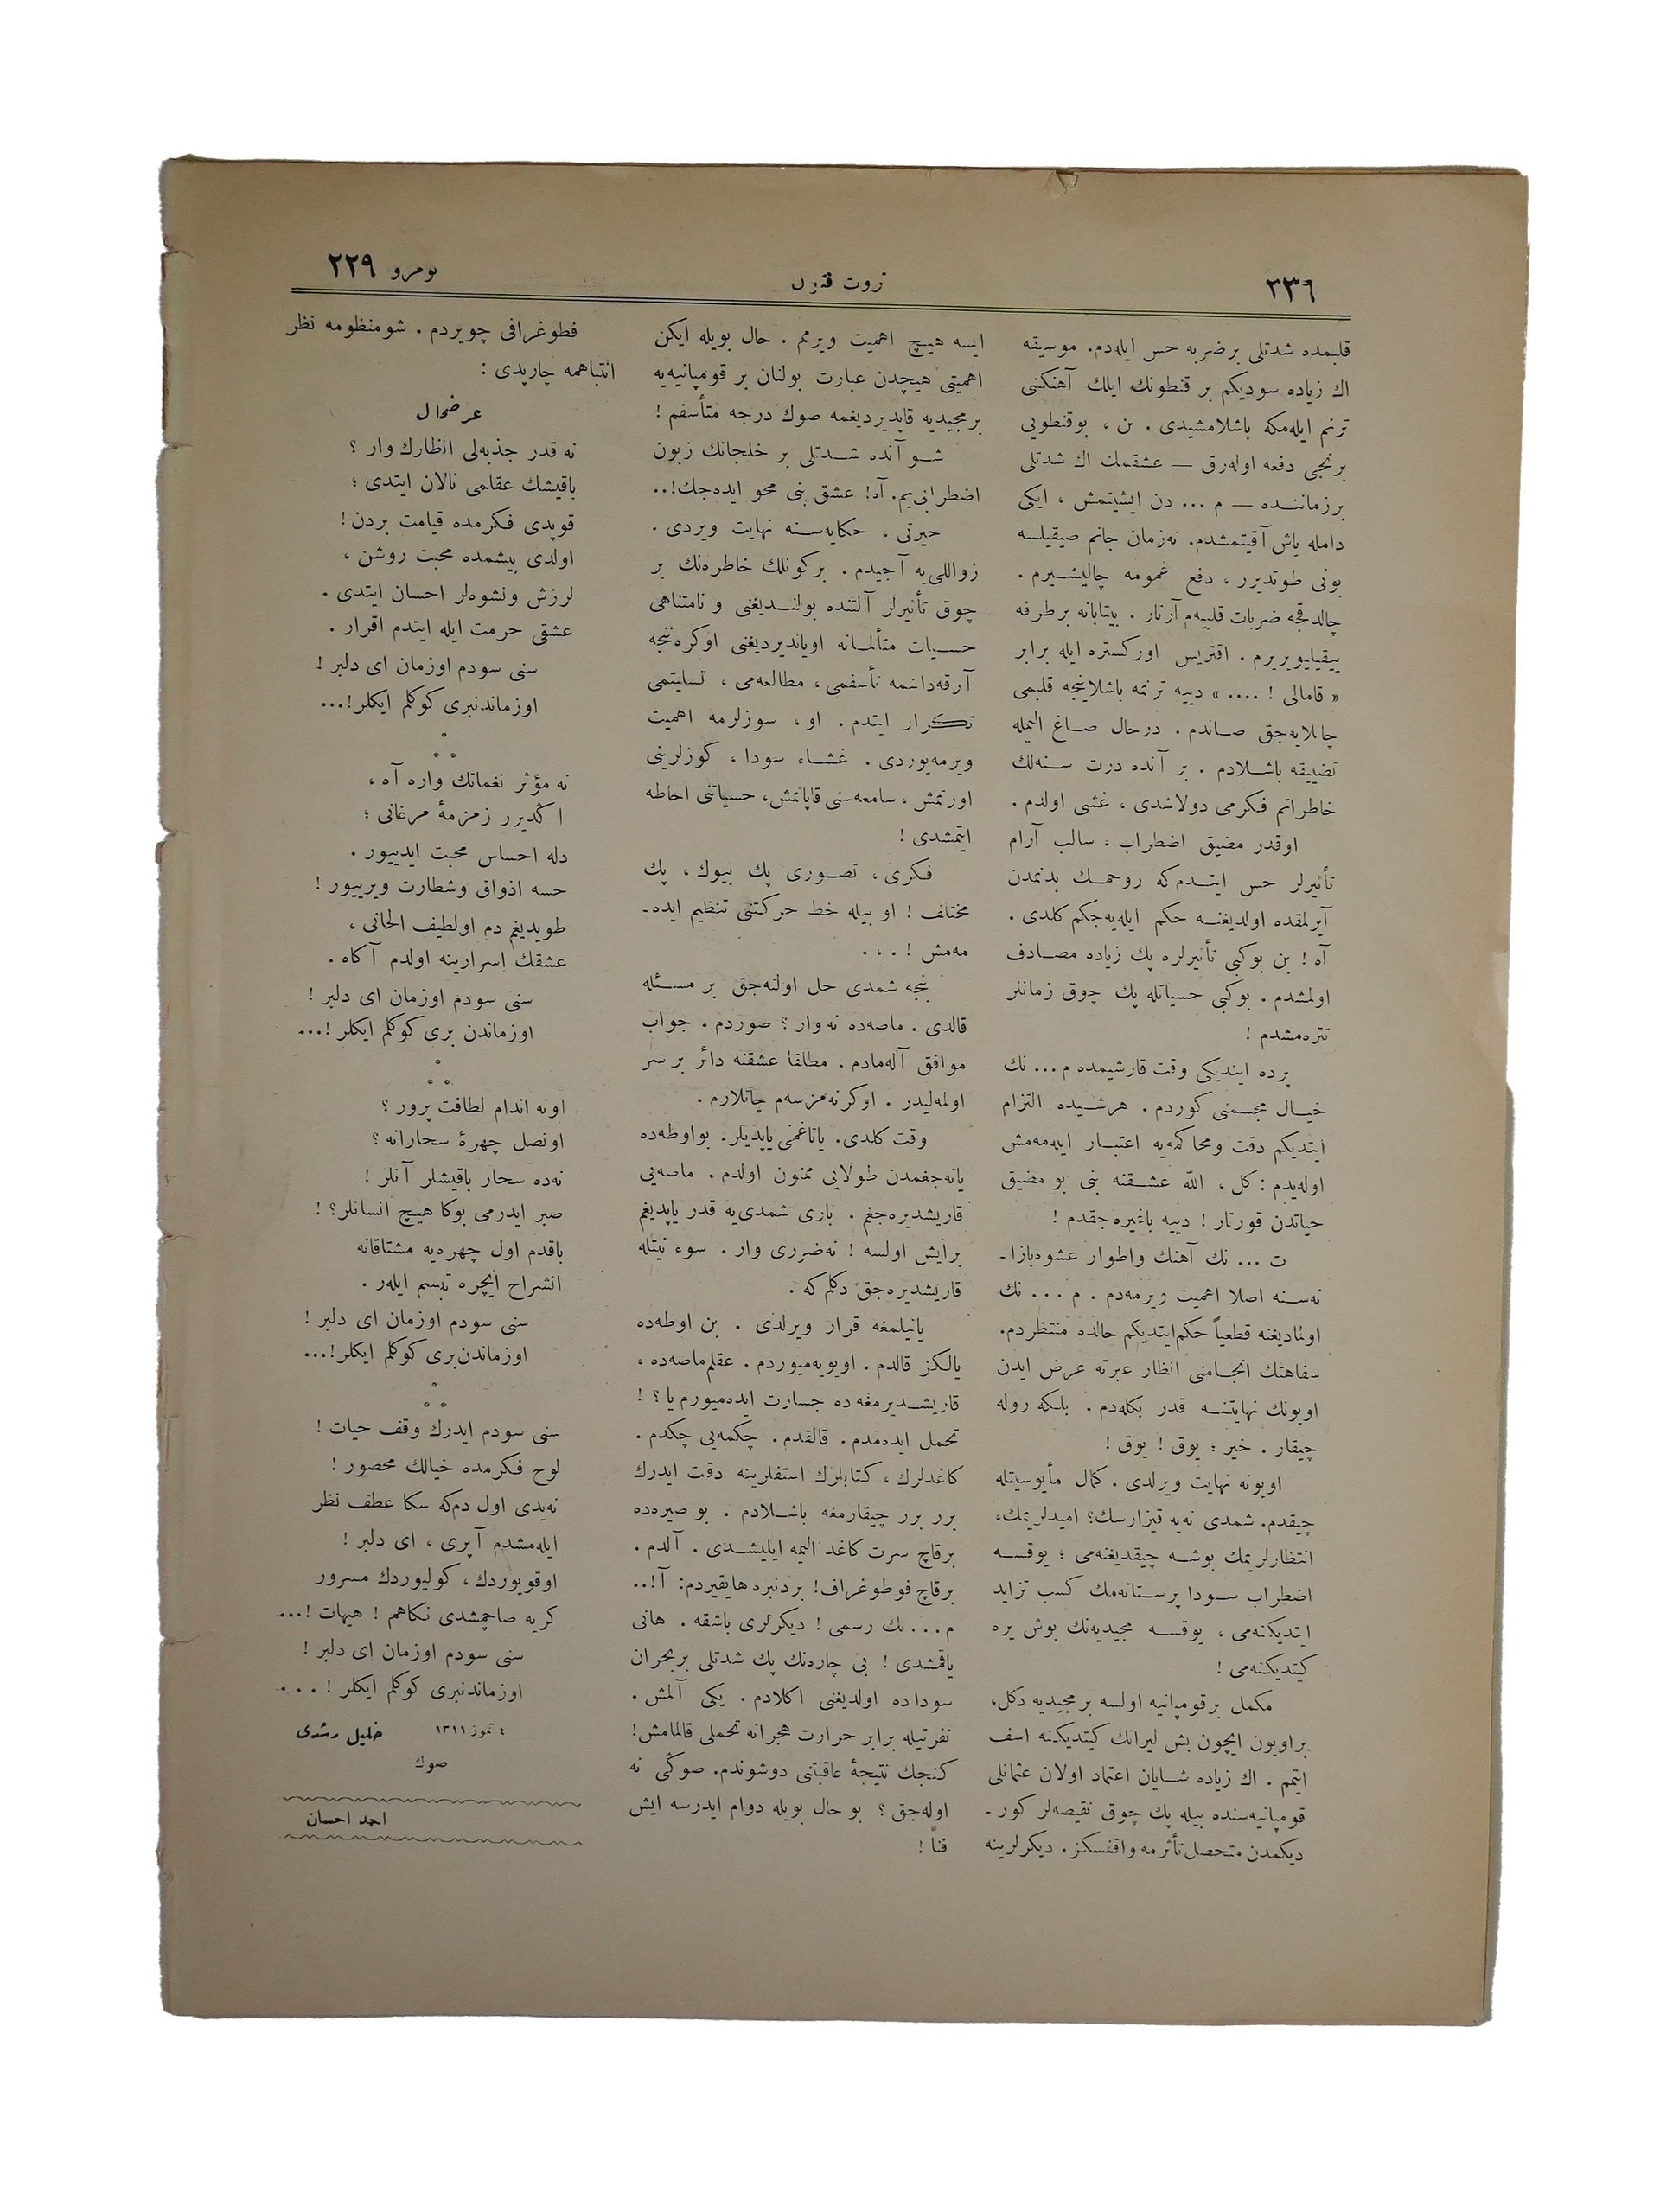 ٣٣٦
ثروت فنون
نومرو ٢٢٩
قلبمده شدتلی برضربه حس ایله‌دم. موسیقه
اك زیاده سودیكم بر قنطونك ایلك آهنكنی
ترنم ایله‌مكه باشلامشیدی . بن ، بوقنطویی
برنجی دفعه اوله‌رق — عشقمك اك شدتلی
برزماننده — م ... دن ایشیتمش ، ایكی
دامله یاش آقیتمشدم. نه‌زمان جانم صیقیلسه
بونی طوتدیرر ، دفع غمومه چالیشیرم .
چالدقجه ضربات قلبیه‌م آرتار . بیتابانه برطرفه
ییقیلیویریرم . اقتریس اوركستره ایله برابر
« قامالی ! .... » دییه ترنمه باشلاینجه قلبمی
چاتلایه‌جق صاندم . درحال صاغ الیمله
تضییقه باشلادم . بر آنده درت سنه‌لك
خاطراتم فكرمی دولاشدی ، غشی اولدم .
اوقدر مضیق اضطراب ، سالب آرام
تأثیرلر حس ایتدم‌كه روحمك بدنمدن
آیرلمقده اولدیغنه حكم ایله‌یه‌جكم كلدی .
آه ! بن بوكبی تأثیرلره پك زیاده مصادف
اولمشدم . بوكبی حسیاتله پك چوق زمانلر
تتره‌مشدم !
پرده ایندیكی وقت قارشیمده م ... نك
خیال مجسمنی كوردم . هرشیده التزام
ایتدیكم دقت ومحاكمه‌یه اعتبار ایله‌مه‌مش
اوله‌یدم : كل ، الله عشقنه بنی بو مضیق
حیاتدن قورتار ! دییه باغیره‌جقدم !
ت ... نك آهنك واطوار عشوه‌بازا-
نه‌سنه اصلا اهمیت ویرمه‌دم . م ... نك
اولمادیغنه قطعیاً حكم‌ایتدیكم حالده منتظردم.
سفاهتك انجامنی انظار عبرته عرض ایدن
اویونك نهایتنه قدر بكله‌دم . بلكه روله
چیقار . خیر ؛ یوق ! یوق !
اویونه نهایت ویرلدی . كمال مأیوسیتله
چیقدم. شمدی نه‌یه قیزارسك؟ امیدلریمك،
انتظارلریمك بوشه چیقدیغنه‌می ؛ یوقسه
اضطراب سودا پرستانه‌مك كسب تزاید
ایتدیكنه‌می ، یوقسه مجیدیه‌نك بوش یره
كیتدیكنه‌می !
مكمل برقومپانیه اولسه برمجیدیه دكل،
براویون ایچون بش لیرانك كیتدیكنه اسف
ایتمم . اك زیاده شایان اعتماد اولان عثمانلی
قومپانیه‌سنده بیله پك چوق نقیصه‌لر كور-
دیكمدن متحصل تأثرمه واقفسكز. دیكرلرینه
ایسه هیچ اهمیت ویرمم . حال بویله ایكن
اهمیتی هیچدن عبارت بولنان بر قومپانیه‌یه
برمجیدیه قاپدیردیغمه صوك درجه متأسفم !
شو آنده شدتلی بر خلجانك زبون
اضطرابی‌یم. آه! عشق بنی محو ایده‌جك!..
حیرتی ، حكایه‌سنه نهایت ویردی .
زواللی‌یه آجیدم . بركونلك خاطره‌نك بر
چوق تأثیرلر آلتنده بولندیغنی و نامتناهی
حسیات متألمانه اویاندیردیغنی اوكره‌ننجه
آرقه‌داشمه تأسفمی، مطالعه‌می ، تسلیتمی
تكرار ایتدم . او ، سوزلرمه اهمیت
ویرمه‌یوردی . غشاء سودا ، كوزلرینی
اورتمش ، سامعه‌سنی قاپاتمش، حسیاتنی احاطه
ایتمشدی !
فكری ، تصوری پك بیوك ، پك
مختلف ! او بیله خط حركتنی تنظیم ایده-
مه‌مش ! ...
بنجه شمدی حل اولنه‌جق بر مسئله
قالدی . ماصه‌ده نه‌وار ؟ صوردم . جواب
موافق آله‌مادم . مطلقا عشقنه دائر بر سر
اولمه‌لیدر . اوكرنه‌مزسه‌م چاتلارم .
وقت كلدی. یاتاغمنی یاپدیلر. بواوطه‌ده
یاته‌جغمدن طولایی ممنون اولدم . ماصه‌یی
قاریشدیره‌جغم . باری شمدی‌یه قدر یاپدیغم
برایش اولسه ! نه‌ضرری وار . سوء نیتله
قاریشدیره‌جق دكلم‌كه .
یاتیلمغه قرار ویرلدی . بن اوطه‌ده
یالكز قالدم . اویویه‌میوردم . عقلم‌ماصه‌ده ،
قاریشدیرمغه ده جسارت ایده‌میورم یا ؟ !
تحمل ایده‌مدم . قالقدم . چكمه‌یی چكدم .
كاغدلرك ، كتابلرك استفلرینه دقت ایدرك
برر برر چیقارمغه باشلادم . بو صیره‌ده
برقاچ سرت كاغد الیمه ایلیشدی . آلدم .
برقاچ فوطوغراف! بردنبره هایقیردم: آ!..
م ... نك رسمی ! دیكرلری باشقه . هانی
یاقمشدی ! بی چاره‌نك پك شدتلی بربحران
سوداده اولدیغنی اكلادم . یكی آلمش .
نفرتیله برابر حرارت هجرانه تحملی قالمامش!
كنجك نتیجۀ عاقبتنی دوشوندم. صوكی نه
اوله‌جق ؟ بو حال بویله دوام ایدرسه ایش
فنا !
فطوغرافی چویردم . شومنظومه نظر
انتباهمه چارپدی :
عرضحال
نه قدر جذبه‌لی انظارك وار ؟
باقیشك عقلمی نالان ایتدی ؛
قوپدی فكرمده قیامت بردن !
اولدی پیشمده محبت روشن ،
لرزش ونشوه‌لر احسان ایتدی .
عشقی حرمت ایله ایتدم اقرار .
سنی سودم اوزمان ای دلبر !
اوزماندنبری كوكلم ایكلر!...
نه مؤثر نغماتك واره آه ،
اكدیرر زمزمۀ مرغانی ؛
دله احساس محبت ایدییور .
حسه اذواق وشطارت ویرییور !
طویدیغم دم اولطیف الحانی ،
عشقك اسرارینه اولدم آكاه .
سنی سودم اوزمان ای دلبر !
اوزماندن بری كوكلم ایكلر !...
اونه اندام لطافت پرور ؟
اونصل چهرۀ سحارانه ؟
نه‌ده سحار باقیشلر آنلر !
صبر ایدرمی بوكا هیچ انسانلر؟ !
باقدم اول چهره‌یه مشتاقانه
انشراح ایچره تبسم ایلەر .
سنی سودم اوزمان ای دلبر !
اوزماندن‌بری كوكلم ایكلر!...
سنی سودم ایدرك وقف حیات !
لوح فكرمده خیالك محصور !
نه‌یدی اول دم‌كه سكا عطف نظر
ایله‌مشدم آپری ، ای دلبر !
اوقویوردك ، كولیوردك مسرور
كریه صاچمشدی نكاهم ! هیهات !...
سنی سودم اوزمان ای دلبر !
اوزماندنبری كوكلم ایكلر ! ...
٤ تموز ١٣١١ خلیل رشدی
صوك
احمد احسان